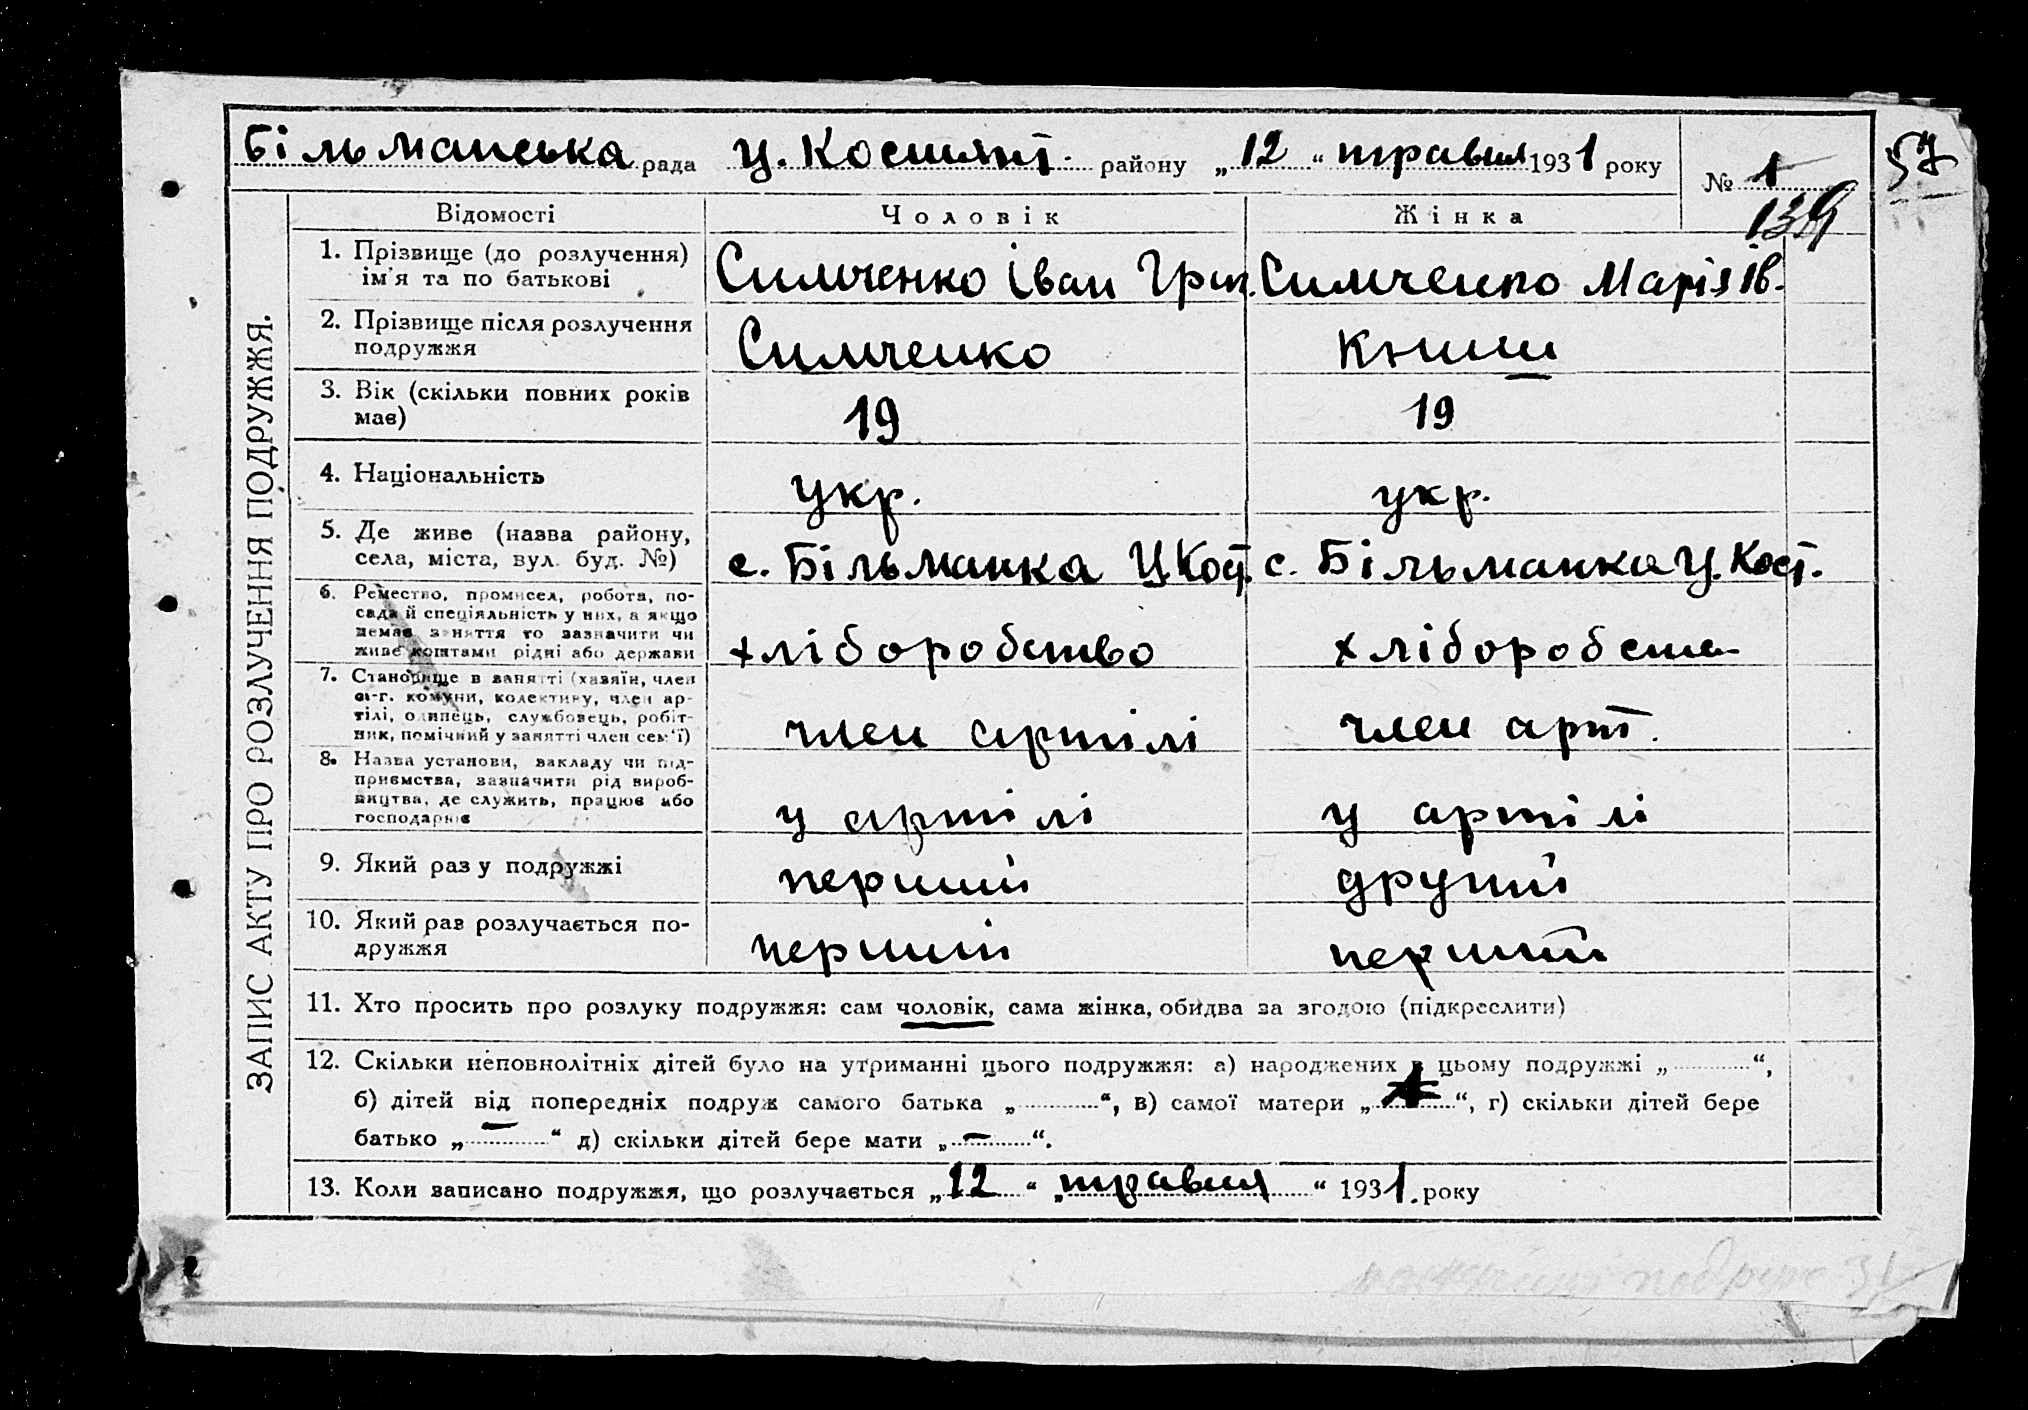 Більманська рада Ц. Костянт. району „12“ травня 1931 року
№ 1
57
139
ЗАПИС АКТУ ПРО РОЗЛУЧЕННЯ ПОДРУЖЖЯ.
Відомості Чоловік Жінка
1. Прізвище (до розлучення) ім'я та по батькові Симченко Іван Григ. Симченко Марія Ів.
2. Прізвище після розлучення подружжя Симченко Книш
3. Вік (скільки повних років має) 19 19
4. Національність укр. укр.
5. Де живе (назва району, села, міста, вул. буд. №) с. Більманка Ц.Кост. с. Більманка Ц.Кост.
6. Ремество, промисел, робота, посада й спеціяльність у них, а якщо немає заняття то зазначити чи живе коштами рідні або держави хліборобство хлібороб
7. Становище в занятті (хазяїн, член с.-г. комуни, колективу, член артілі, одинець, службовець, робітник, помічний у занятті член сем'ї) член артілі член арт.
8. Назва установи, закладу чи підприємства, зазначити рід виробництва, де служить, працює або господарює у артілі у артілі
9. Який раз у подружжі перший другий
10. Який раз розлучається подружжя перший перший
11. Хто просить про розлуку подружжя: сам чоловік, сама жінка, обидва за згодою (підкреслити)
12. Скільки неповнолітніх дітей було на утриманні цього подружжя: а) народжених в цьому подружжі „ “,
б) дітей від попередніх подруж самого батька „ “, в) самої матери „ 1 “, г) скільки дітей бере
батько „ — “ д) скільки дітей бере мати „ — “.
13. Коли записано подружжя, що розлучається „12“ „травня“ 1931. року